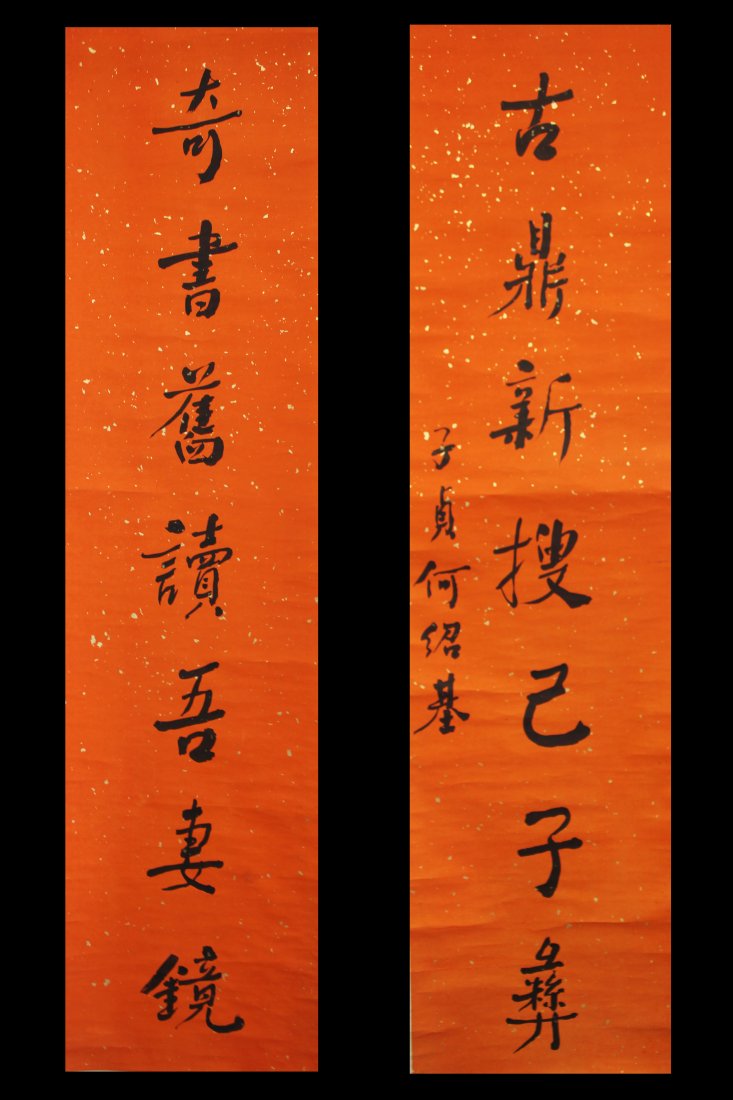 奇書舊讀吾妻鏡
古鼎新搜己子彝
子貞何紹基